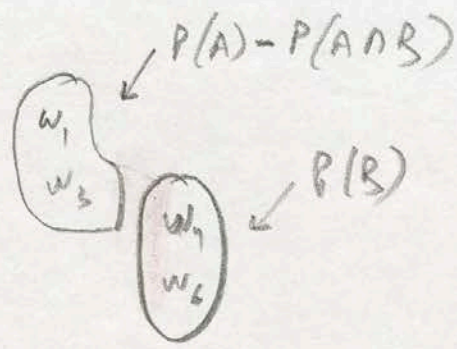 P(A) - P(A∩B)
w₁
w₃
P(B)
w₄
w₆